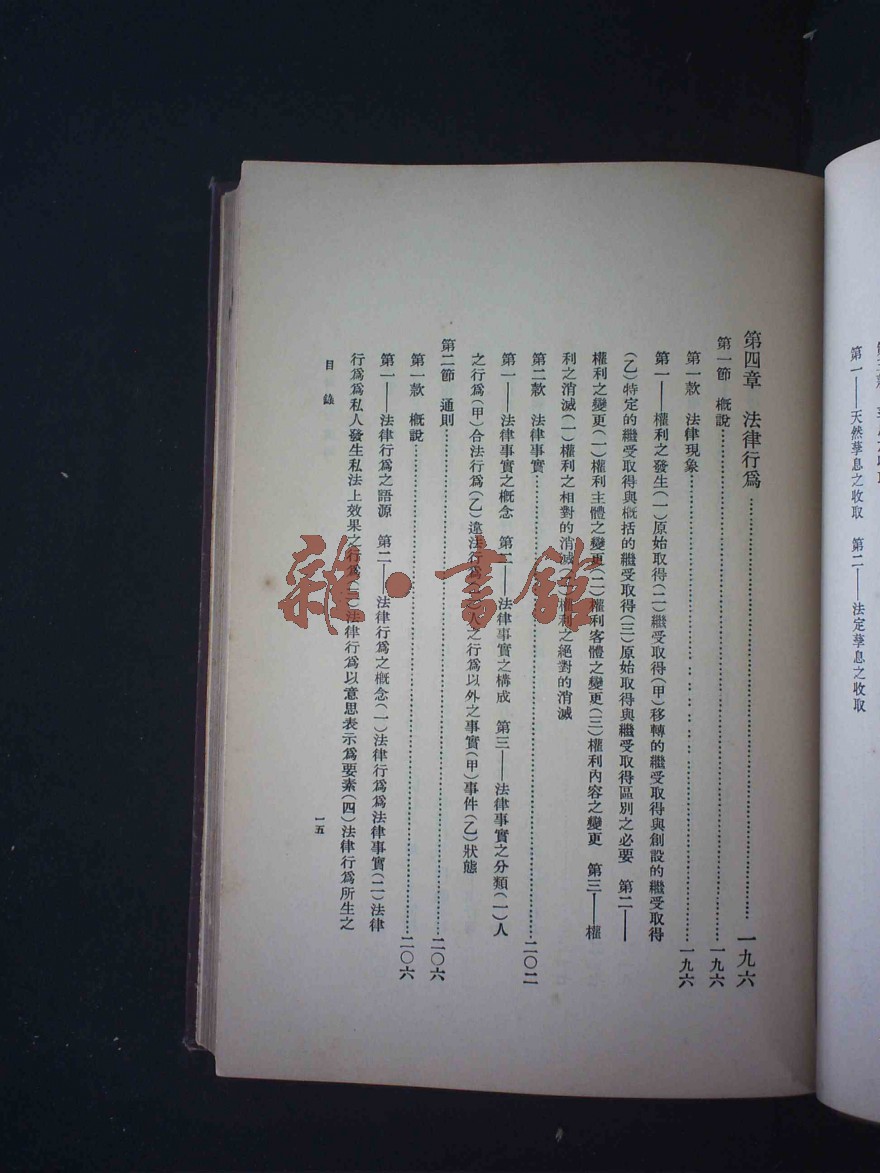 第一——天然孳息之收取　第二——法定孳息之收取
第四章　法律行爲……一九六
第一節　概說……一九六
第一款　法律現象……一九六
第一——權利之發生(一)原始取得(二)繼受取得(甲)移轉的繼受取得與創設的繼受取得
(乙)特定的繼受取得與概括的繼受取得(三)原始取得與繼受取得區別之必要　第二——
權利之變更(一)權利主體之變更(二)權利客體之變更(三)權利內容之變更　第三——權
利之消滅(一)權利之相對的消滅(二)權利之絕對的消滅
第二款　法律事實……二〇二
第一——法律事實之概念　第二——法律事實之構成　第三——法律事實之分類(一)人
之行爲(甲)合法行爲(乙)違法行爲(二)人之行爲以外之事實(甲)事件(乙)狀態
第二節　通則……二〇六
第一款　概說……二〇六
第一——法律行爲之語源　第二——法律行爲之概念(一)法律行爲爲法律事實(二)法律
行爲爲私人發生私法上效果之行爲(三)法律行爲以意思表示爲要素(四)法律行爲所生之
目錄
一五
雜·書館